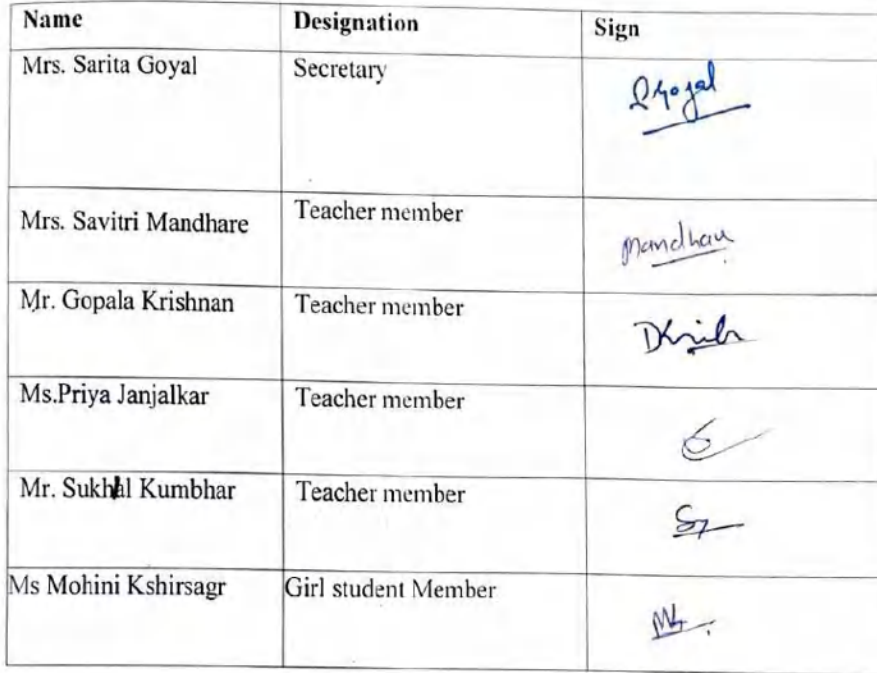 Name Designation Sign
Mrs. Sarita Goyal Secretary Goyal
Mrs. Savitri Mandhare Teacher member
Mr. Gopala Krishnan Teacher member
Ms.Priya Janjalkar Teacher member
Mr. Kumbhar Teacher member
Ms Mohini Kshirsagr Girl student Member